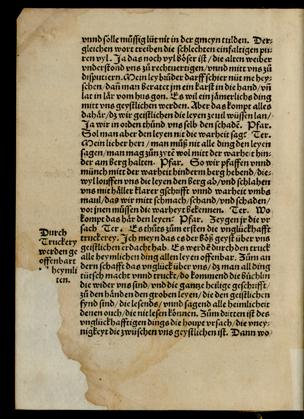 vnnd solle müssig lüt nit in der gmeyn dulden. Der-
gleichen wort treiben die schlechten einfaltigen pü-
ren vyl. Ja das noch vyl böser ist/ die alten weiber
vnderstond vns zů rechtuertigen/ vnnd mitt vns zů
disputiern. Mein ley hüders darff schier nüt me hey-
schen/ dañ man
lat in lär vom hus gon. Es wil ein jämerlichs ding
mitt vns geystlichen werden. Aber das kompt alles
dahår/ dz wir geistlichen die leyen zeul wüssen lan/
Ja wir in orden thünd vns selb den schadē. Pfar.
Sol man aber den leyen nit die warheit sagē Ter.
Mein lieber herr/ man můß nit alle ding den leyen
sagen/ man mag zůn zytē wol mitt der warheit hin-
der am berg halten. Pfar. So wir pfaffen vnnd
münch mitt der warheit hindern berg hebend/ die-
wyl louffen vns die leyen den berg ab/ vnd schlahen
vns mit häller klarer gschrifft vnnd warheit vmbs
maul/ das wir mitt schmach/ schand/ vnd schaden/
vor jnen müssen die warheyt bekennen. Ter. Wo
kompt das har den leyen? Pfar. Zeygen jr die vr
sach Ter. Es thůts zům ersten die vnglückhafft
truckerey. Ich mey das es der böß geyst über vns
geistlichen erdacht hab. Es werdē durch den truck
alle heymlichen ding allen leyen offenbar. Zům an
dern schafft das vnglück über vns/ dz man all ding
tütsch macht vnnd truckt/ do kommend die büchlin
die wider vns sind/ vnd die gantze heilige geschrifft/
zů den händen der groben leyen/ die den geistlichen
fynd sind/ die lesends/ vnnd sagend alle heimlicheit
denen ouch/ die nit lesen können. Zům dritten ist des
vnglückhafftigen dings die houpt vrsach/ die vney-
nigkeyt die zwüschen vns geystlichen ist. Dann wo-
Durch
Truckery
werden ge
offenbart
heymli
ten.